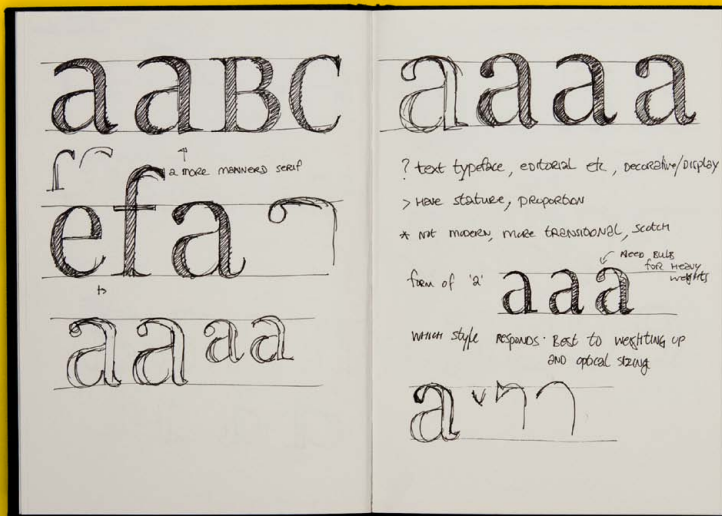 aaBC
a more mannered serif
efa
aaaa
aaaa
? text typeface, editorial etc, Decorative/Display
> Have stature, proportion
* Not modern, more transitional, scotch
Need bulb
for heavy
weights
form of 'a' aaa
which style responds best to weighting up
and optical sizing
a